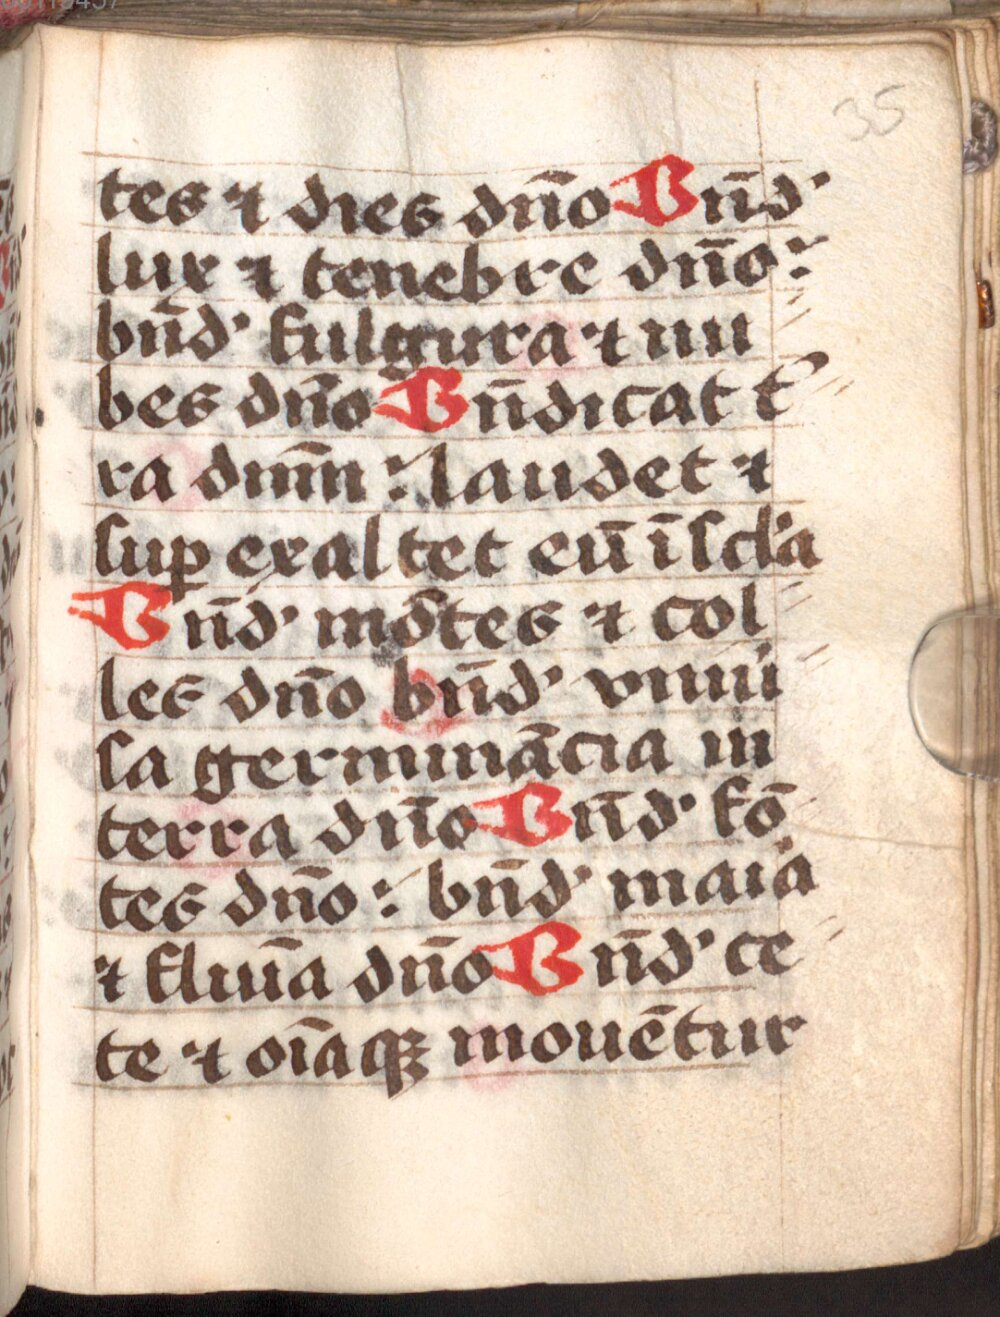 35
tes ⁊ dies dn̄o Bn̄d'
lux ⁊ tenebre dn̄o:
bn̄d' fulgura ⁊ nu
bes dn̄o Bn̄dicat t'
ra dnm̄ : laudet ⁊
suꝑ exaltet eū ī sc̄la
Bn̄d' mōtes ⁊ col
les dn̄o bn̄d' vniū
sa germinācia in
terra dn̄o Bn̄d' fō
tes dn̄o : bn̄d' maia
⁊ fluuīa dn̄o Bn̄d' ce
te ⁊ oīa qꝫ mouētur